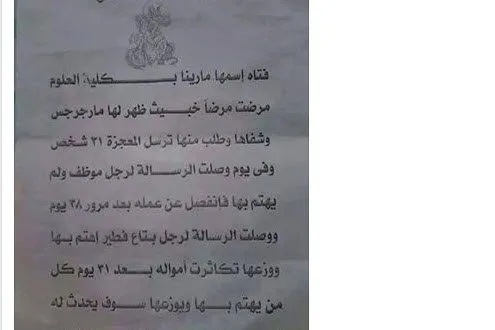 فتاه إسمها مارينا بكلية العلوم
مرضت مرضاً خبيث ظهر لها مارجرجس
وشفاها وطلب منها ترسل المعجزة ٣١ شخص
وفى يوم وصلت الرسالة لرجل موظف ولم
يهتم بها فانفصل عن عمله بعد مرور ٣٨ يوم
ووصلت الرسالة لرجل بتاع فطير إهتم بها
ووزعها تكاثرت أمواله بعد ٣١ يوم كل
من يهتم بها ويوزعها سوف يحدث له